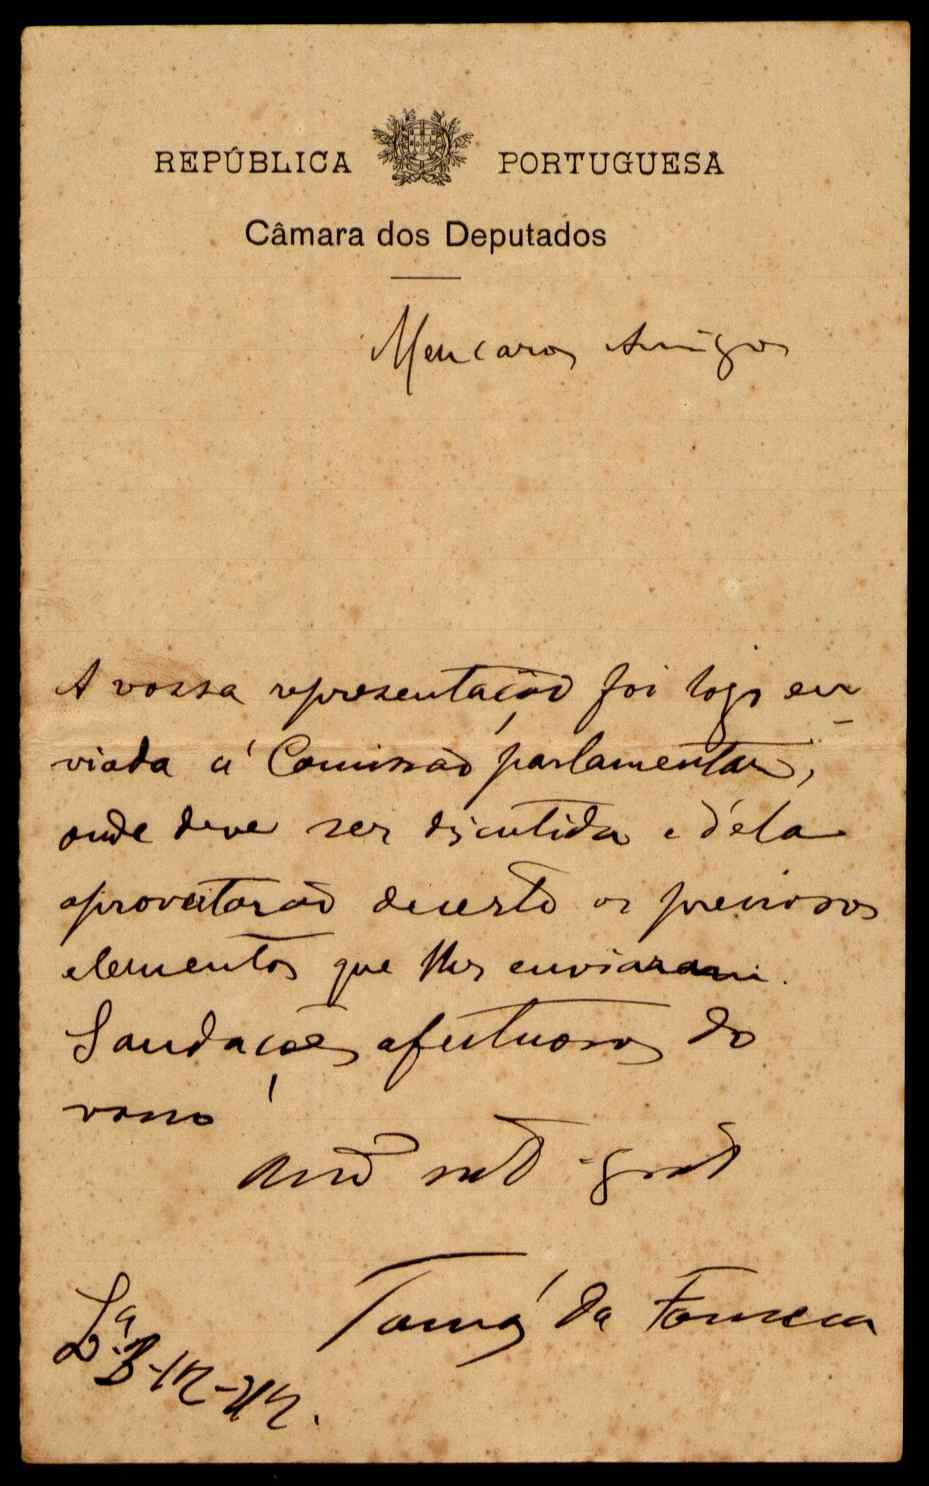 REPÚBLICA PORTUGUESA
Câmara dos Deputados
Meus caros Amigos
A vossa representação foi logo en-
viada á Comissão parlamentar,
onde deve ser discutida e d'ela
aproveitarão decerto os preciosos
elementos que lhes enviaram.
Saudações afectuosas do
vosso
Amº mtº gratº
Tomás da Fonseca
Lxª